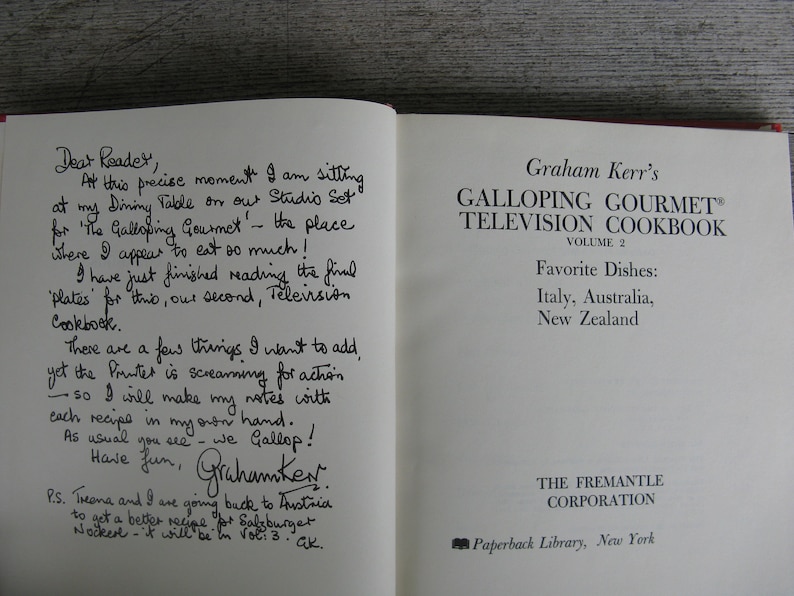 Dear Reader,
At this precise moment I am sitting
at my Dining Table on our Studio Set
for 'The Galloping Gourmet' – the place
where I appear to eat so much!
I have just finished reading the final
'plates' for this, our second, Television
Cookbook.
There are a few things I want to add,
yet the Printer is screaming for action
– so I will make my notes with
each recipe in my own hand.
As usual you see – we Gallop!
Have fun,
Graham Kerr.
P.S. Treena and I are going back to Austria
to get a better recipe for Salzburger
Nockerl – it will be in Vol: 3.
GK.
Graham Kerr's
GALLOPING GOURMET®
TELEVISION COOKBOOK
VOLUME 2
Favorite Dishes:
Italy, Australia,
New Zealand
THE FREMANTLE
CORPORATION
Paperback Library, New York